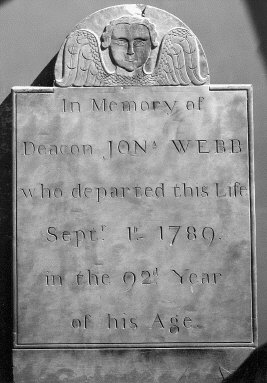 In Memory of
Deacon JONᴬ WEBB
who departed this Life
Septʳ 1ˢᵗ 1789.
in the 92ᵈ Year
of his Age.